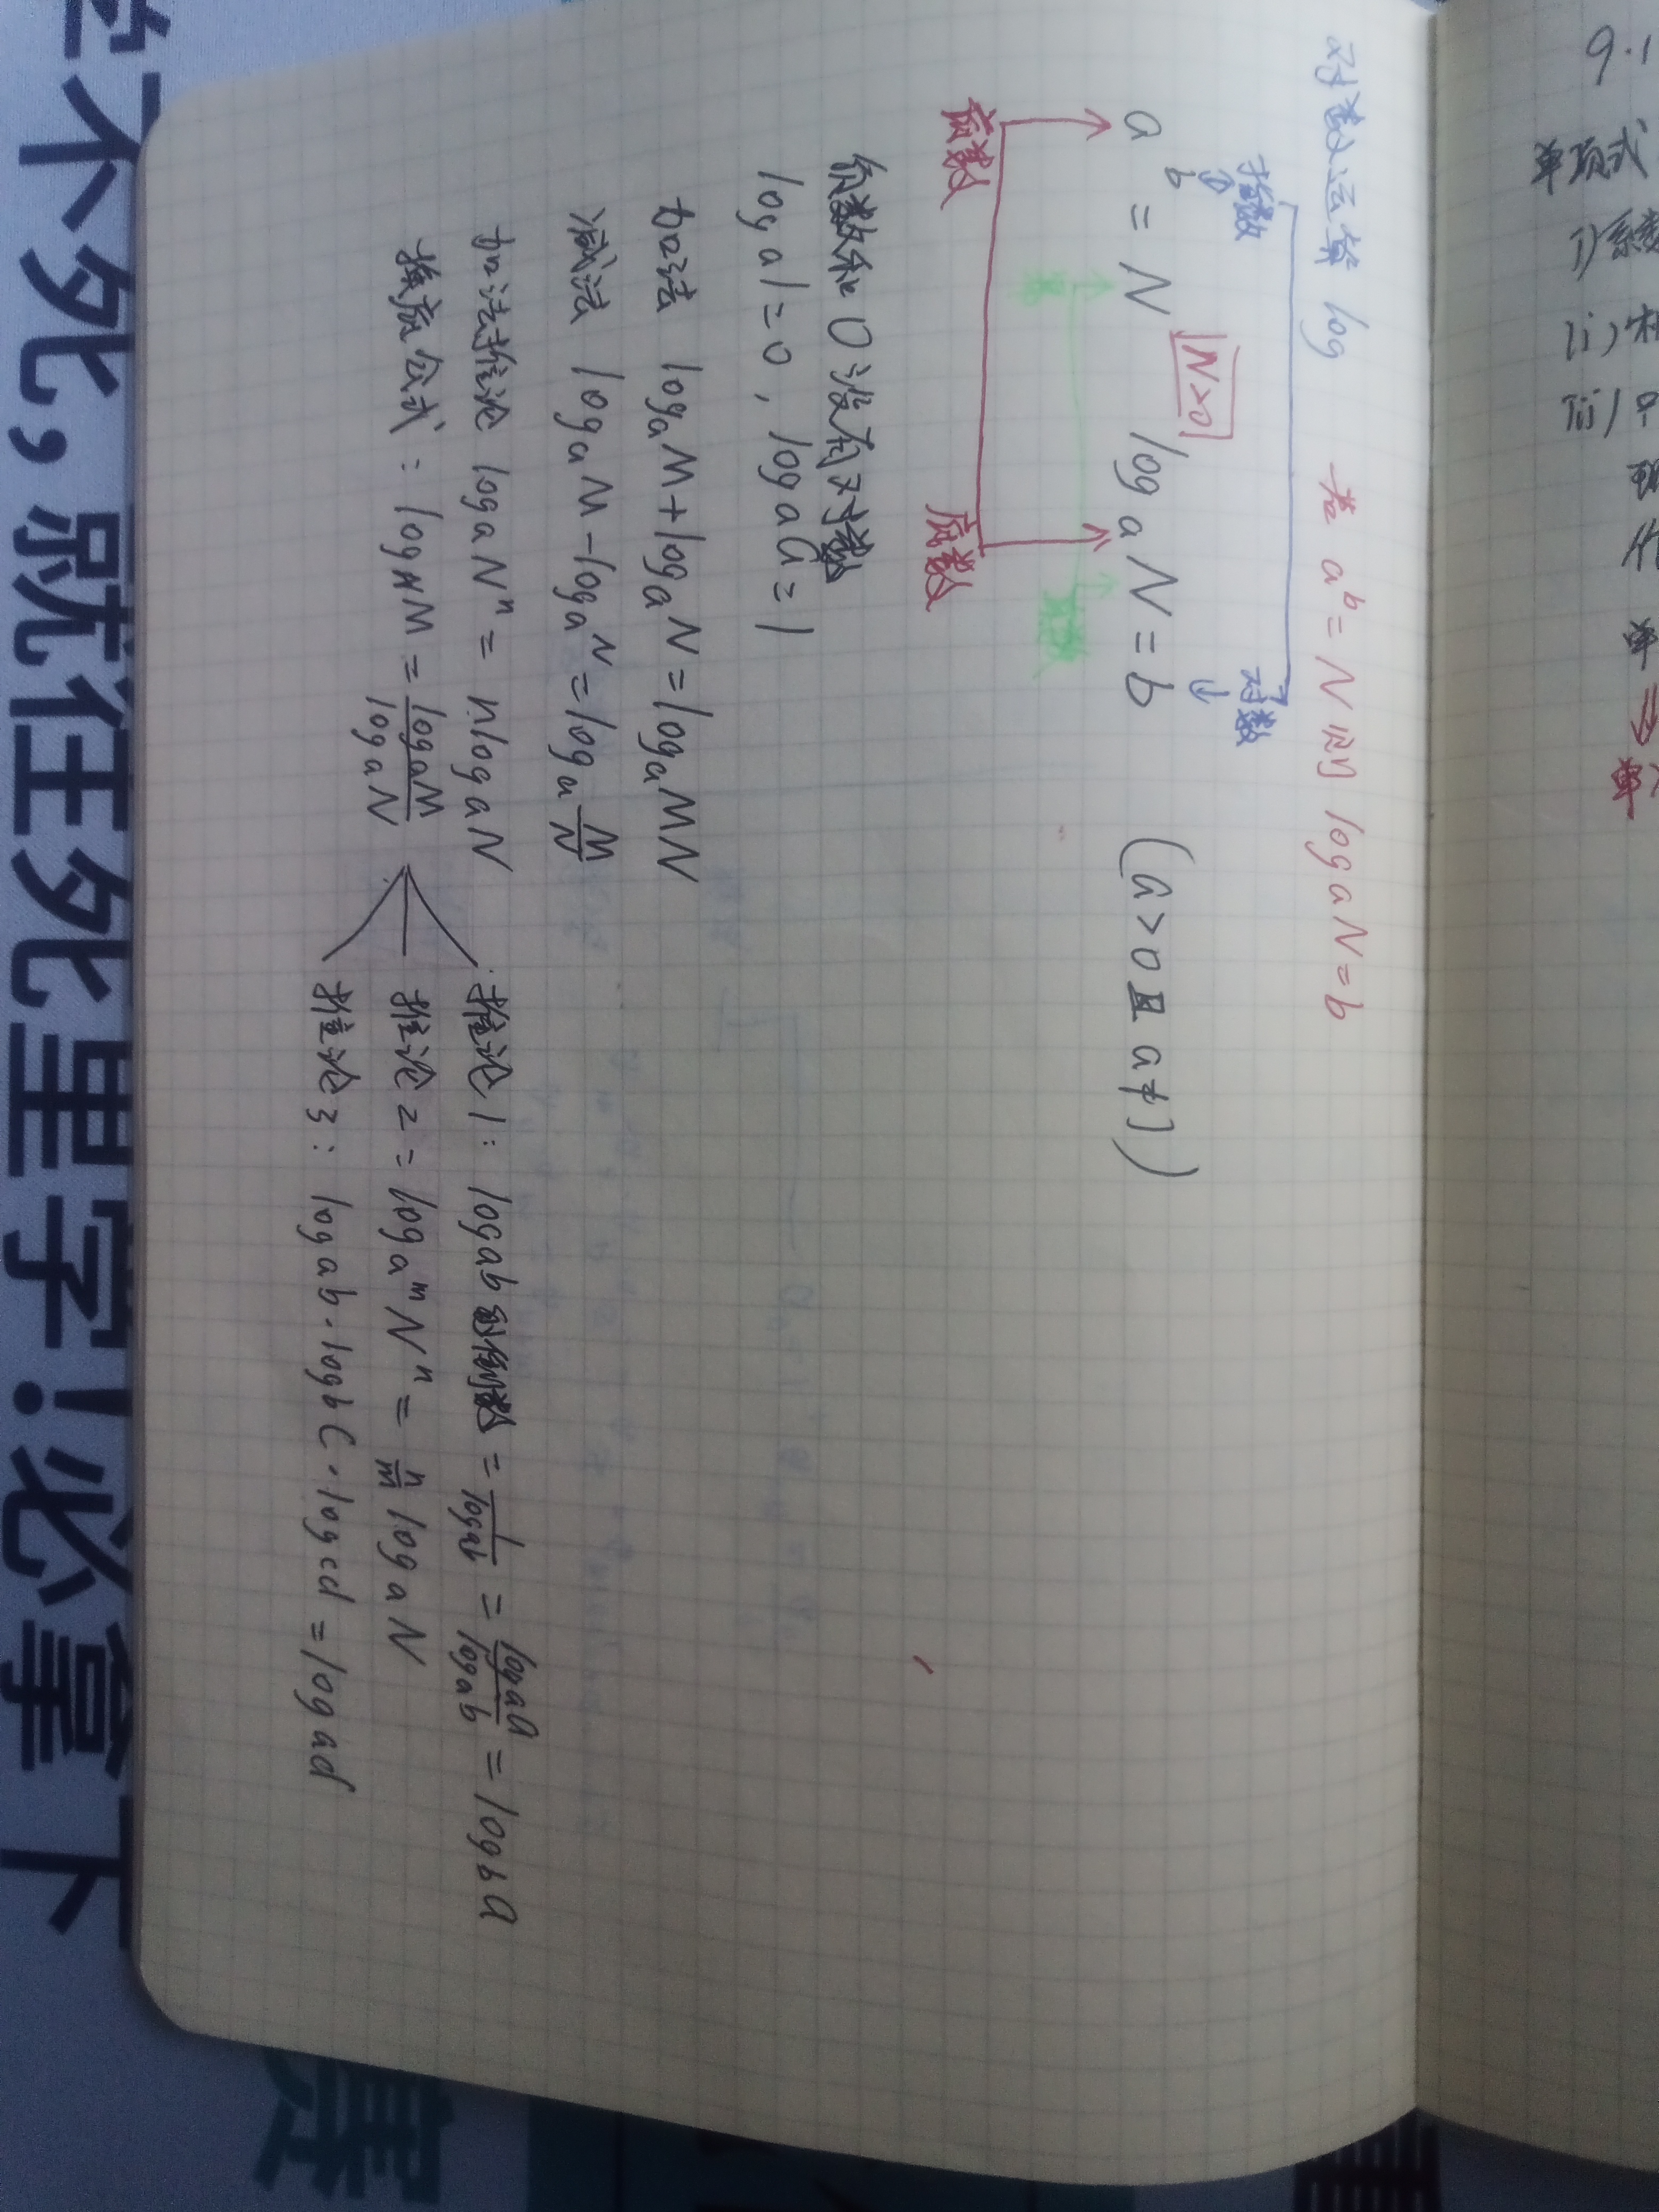 对数运算 log 若 aᵇ=N 则 logₐN=b
指数 对数
aᵇ = N N>0 logₐN=b (a>0且a≠1)
幂 真数
底数 底数
负数和0没有对数
logₐ1=0, logₐa=1
加法 logₐM+logₐN=logₐMN
减法 logₐM-logₐN=logₐM/N
加法推论 logₐNⁿ = nlogₐN
换底公式: log_N M = logₐM/logₐN
推论1: logₐb的倒数 = 1/logₐb = logₐa/logₐb = log_b a
推论2 = log_aᵐ Nⁿ = n/m logₐN
推论3: logₐb·log_b c·log_c d = logₐd
9.1
单项式
i)系数
ii)
iii)
单
⇒
单
不死，就往死里学!必拿下